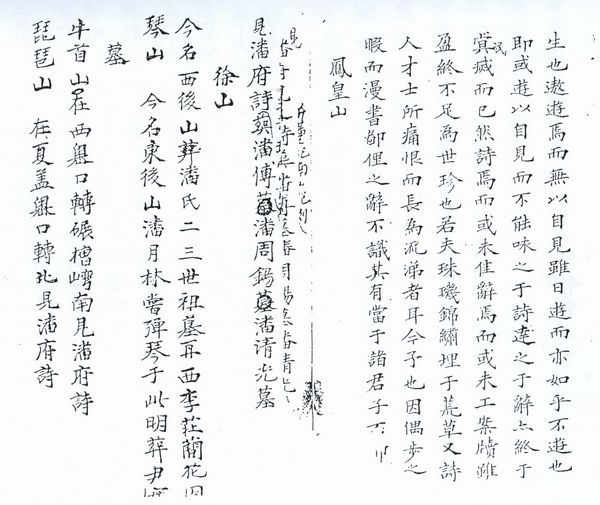 生也遨遊焉而無以自見雖日遊而亦如乎不遊也
即或遊以自見而不能味之于詩達之于辭亦終于
冥泯滅而已然詩焉而或未佳辭焉而或未工案牘雖
盈終不足為世珍也若夫珠璣錦繡埋于荒草又詩
人才士所痛恨而長為流涕者耳今予也因偶步之
暇而漫書鄙俚之辭不識其有當于諸君子否
鳳皇山
見潘府詩 潘傅墓潘周錫墓潘清光墓
徐山
今名西後山葬潘氏二三世祖墓耳西李莊蘭花
琴山 今名東後山潘月林嘗彈琴于此明葬尹
墓
牛首山在西壆口轉碾槽嶴南見潘府詩
琵琶山 在夏盖壆口轉北見潘府詩